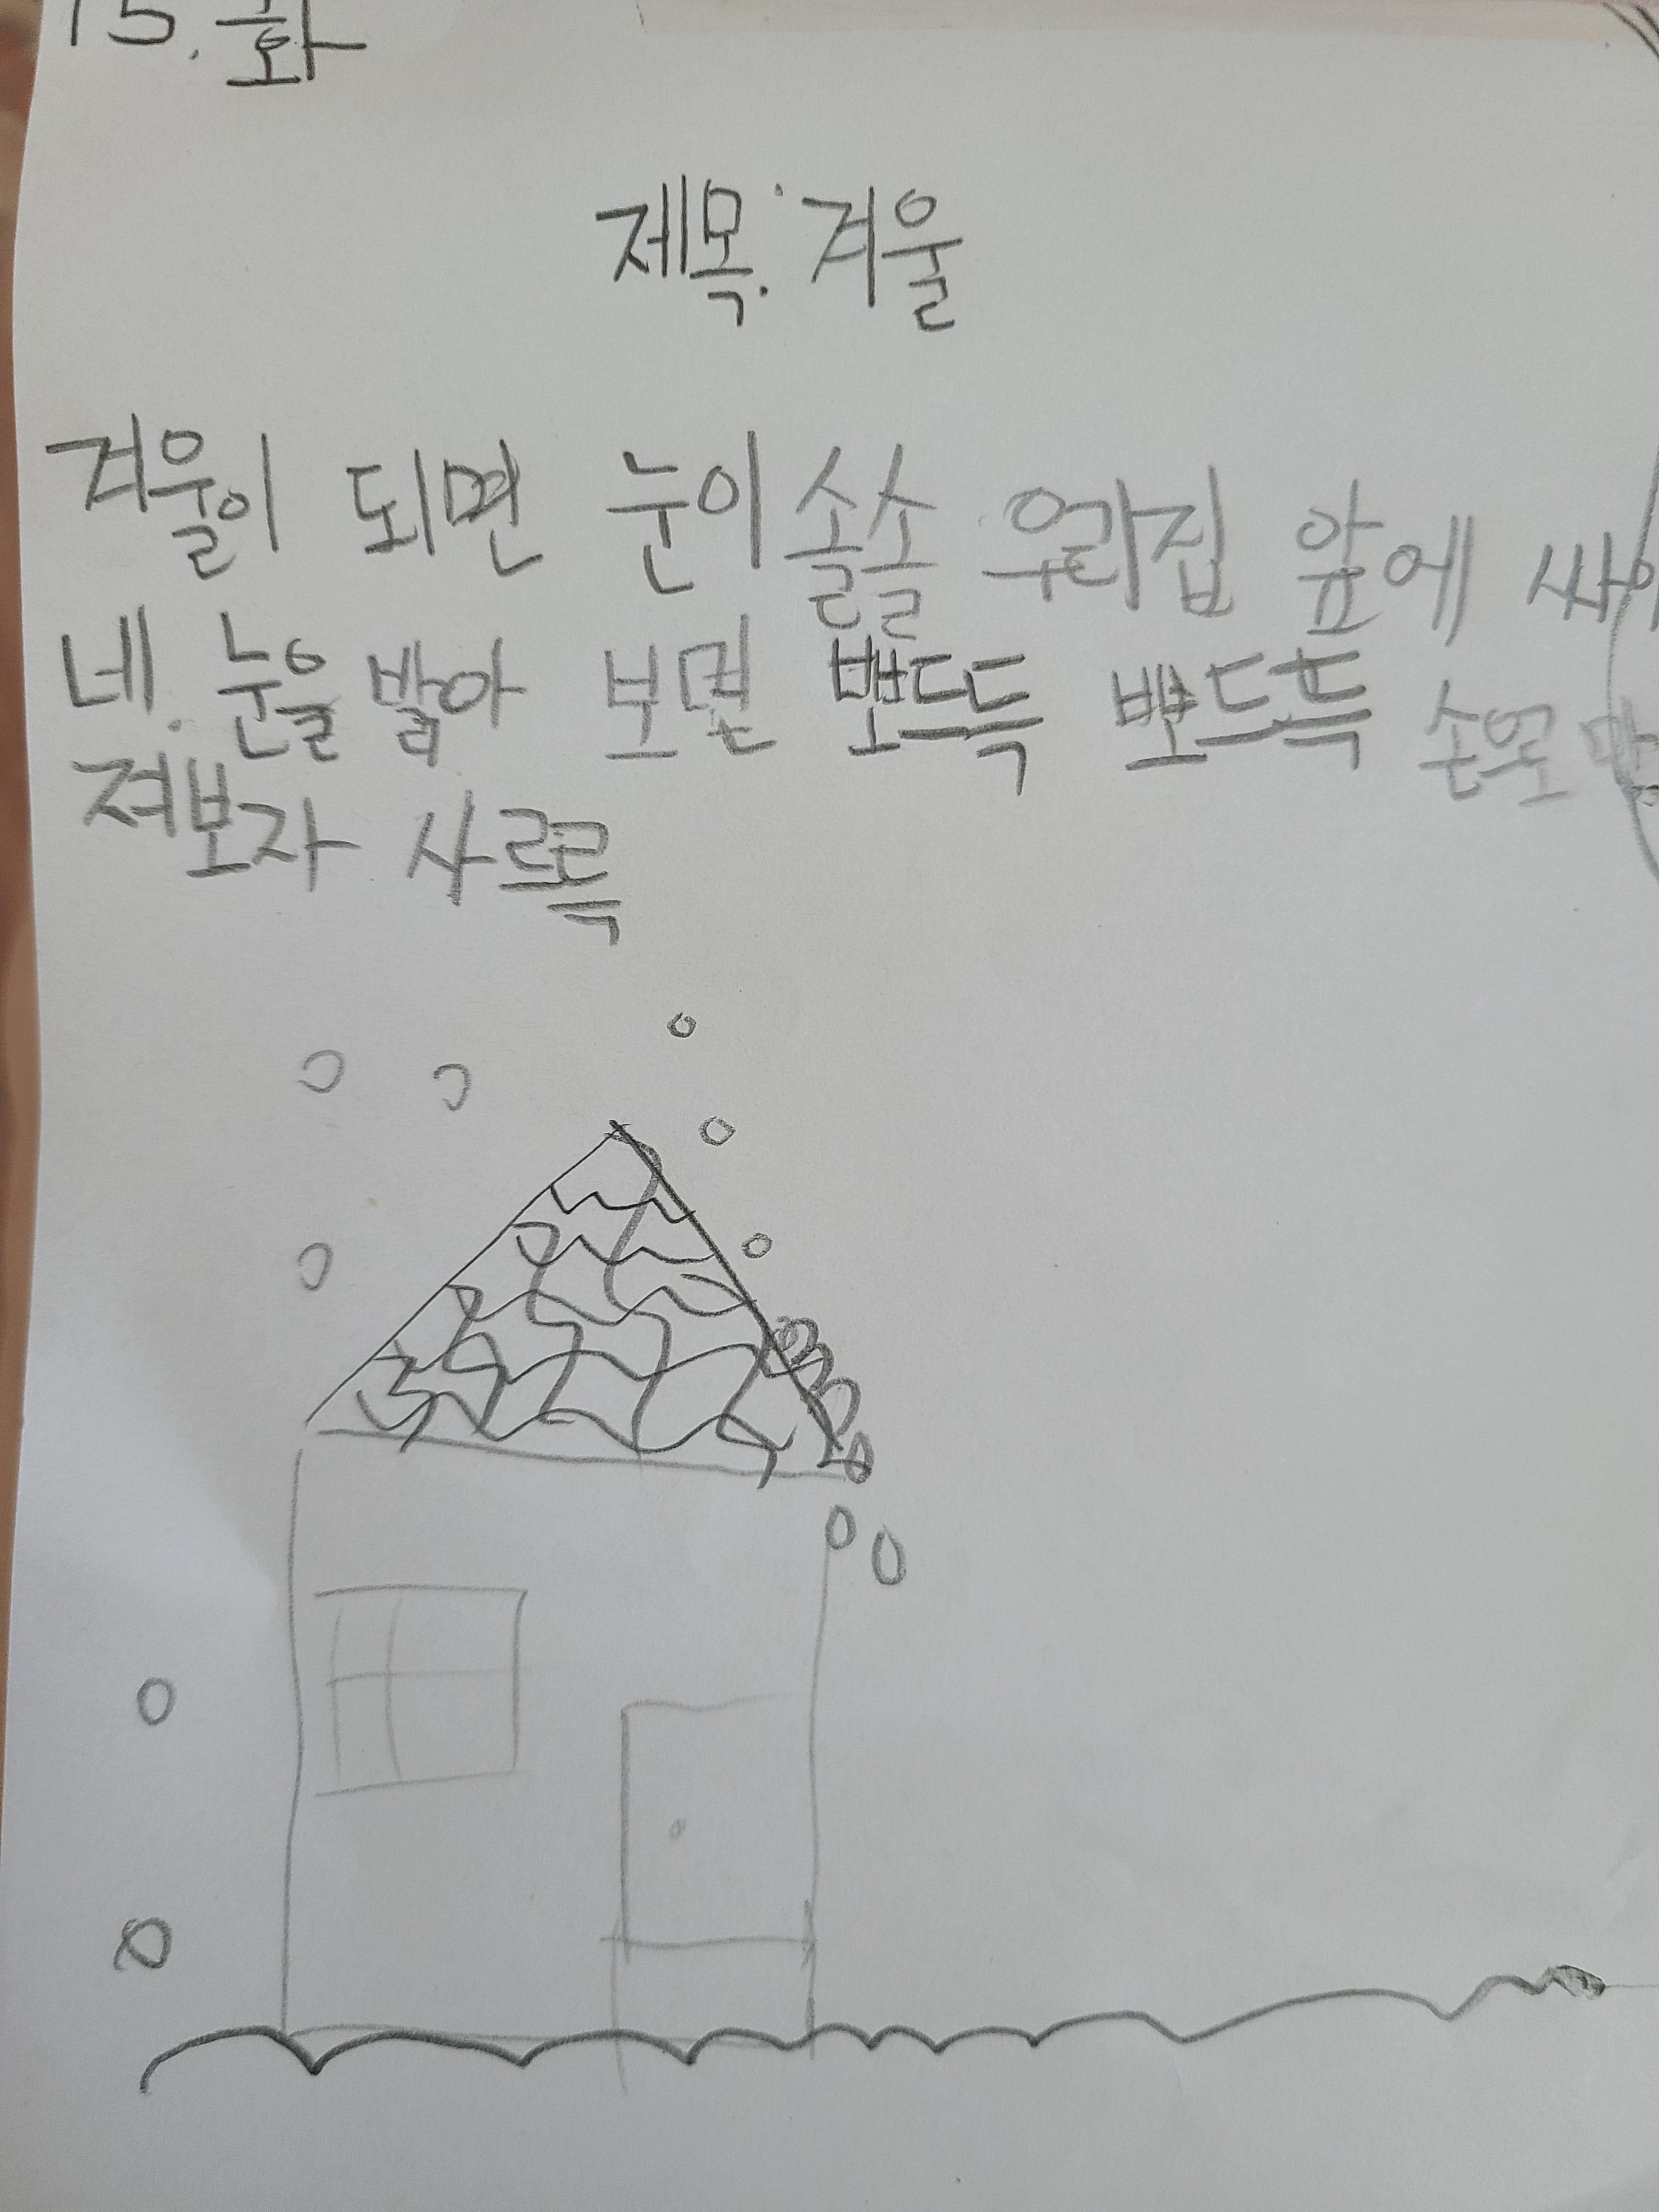 15. 화
제목: 겨울
겨울이 되면 눈이 솔솔 우리집 앞에 싸이
네. 눈을 밟아 보면 뽀드득 뽀드득 손으로 만
져보자 사르륵